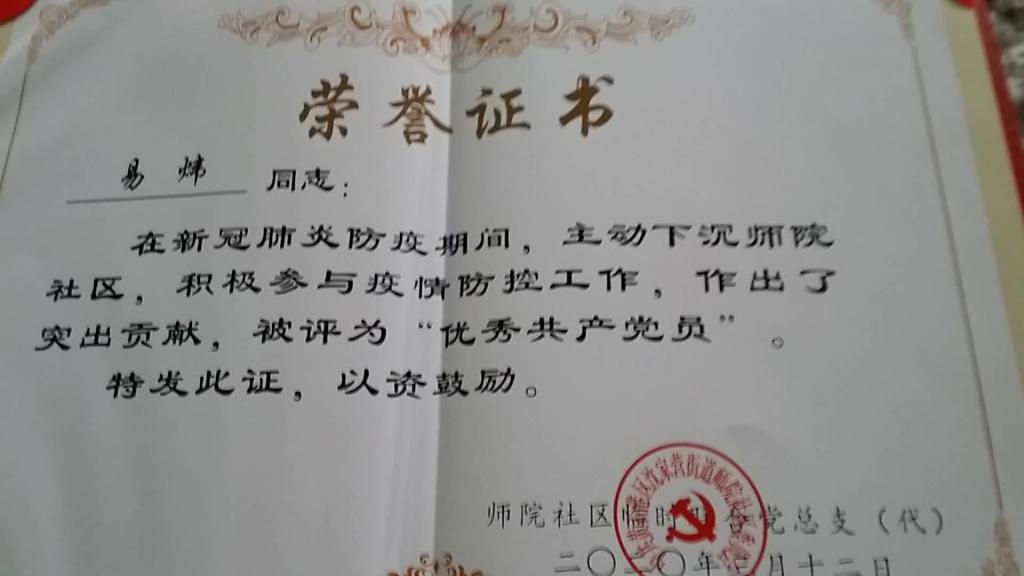 荣誉证书
易炜 同志：
在新冠肺炎防疫期间，主动下沉师院
社区，积极参与疫情防控工作，作出了
突出贡献，被评为“优秀共产党员”。
特发此证，以资鼓励。
师院社区临时 党总支（代）
二〇二〇年 月十二日